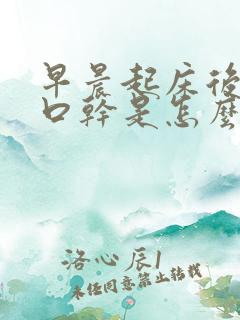 早晨起床後
口幹是怎麼
洛心辰1
未經同意禁止轉載